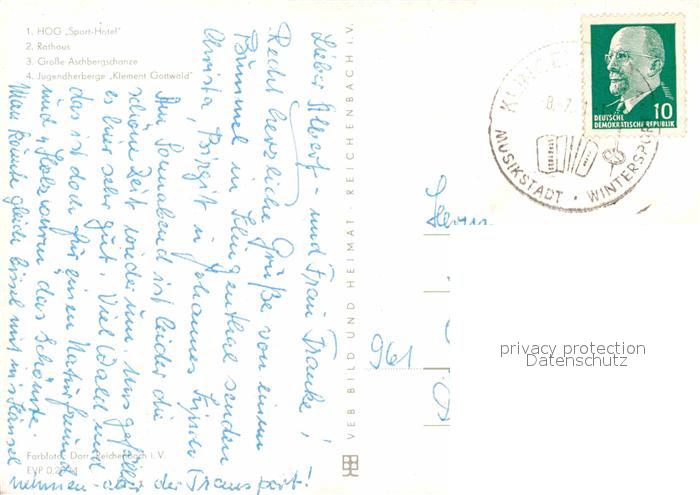 1. HOG „Sport-Hotel"
2. Rathaus
3. Große Aschbergschanze
4. Jugendherberge „Klement Gottwald"
Lieber Albert - und Frau Franke!
Recht herzliche Grüße von einem
Bummel in Klingenthal senden
Christa, Birgit u. Johannes
Am Sonnabend ist leider die
schöne Zeit wieder um. Uns gefällt
es hier sehr gut. Viel Wald und
das ist doch für einen Naturfreund
und Holzwurm das Schönste.
Man könnte gleich bissel mit in
nehmen - aber der Transport!
Farbfoto: Darr, Reichenbach i. V.
EVP 0,20 M
VEB BILD UND HEIMAT REICHENBACH i. V.
KLINGE
8.-7.
MUSIKSTADT · WINTERSPOR
DEUTSCHE
DEMOKRATISCHE REPUBLIK
10
Herrn
961
privacy protection
Datenschutz